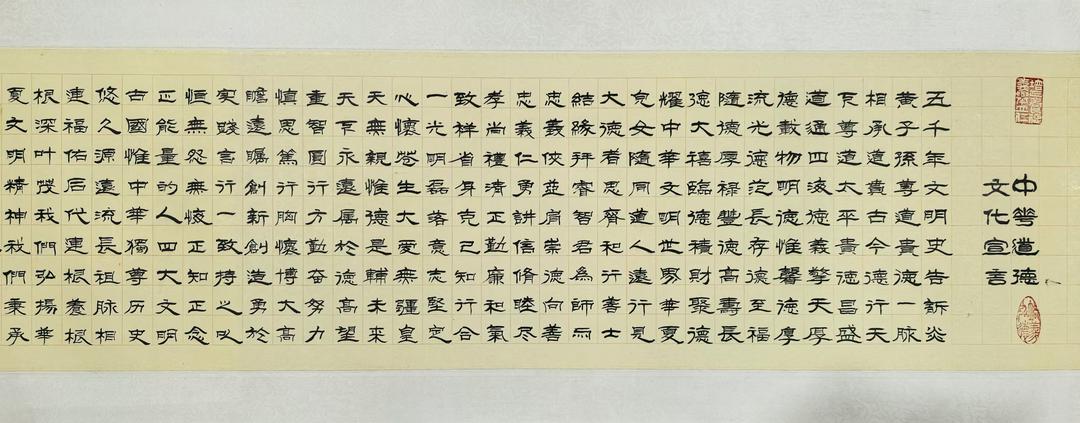 中華道德
文化宣言
五千年文明史告訴炎
黄子孫尊道貴德一脉
相承道貫古今德行天
下尊道太平貴德昌盛
道通四海德義擎天厚
德載物明德惟馨德厚
流光德范長存德至福
隨德厚禄豐德高壽長
德大禧臨德積財聚德
耀中華文明世界華夏
兒女隨同道人遠行見
大德者思齊和行善士
結緣拜睿智君為師而
忠義俠並肩崇德向善
忠義仁勇講信脩睦尽
孝尚禮清正勤廉和氣
致祥省身克己知行合
一光明磊落意志堅定
心懷蒼生大愛無疆皇
天無親惟德是輔未来
天下永遠屬於德高望
重智圓行方勤奋努力
慎思篤行胸懷博大高
瞻遠矚創新創造勇於
实踐言行一致持之以
恒無怨無悔正知正念
正能量的人四大文明
古國惟中華獨尊历史
悠久源遠流長祖脉相
連福佑后代連根養根
根深叶茂我們弘揚華
夏文明精神我們秉承